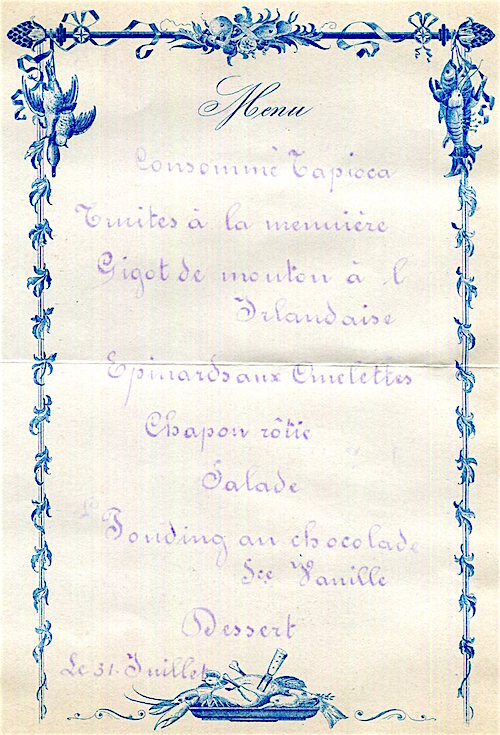 Menu
Consommé Tapioca
Truites à la meunière
Gigot de mouton à l
Irlandaise
Epinards aux Omelettes
Chapon rôtie
Salade
Pouding au chocolade
Sce Vanille
Dessert
Le 31 Juillet